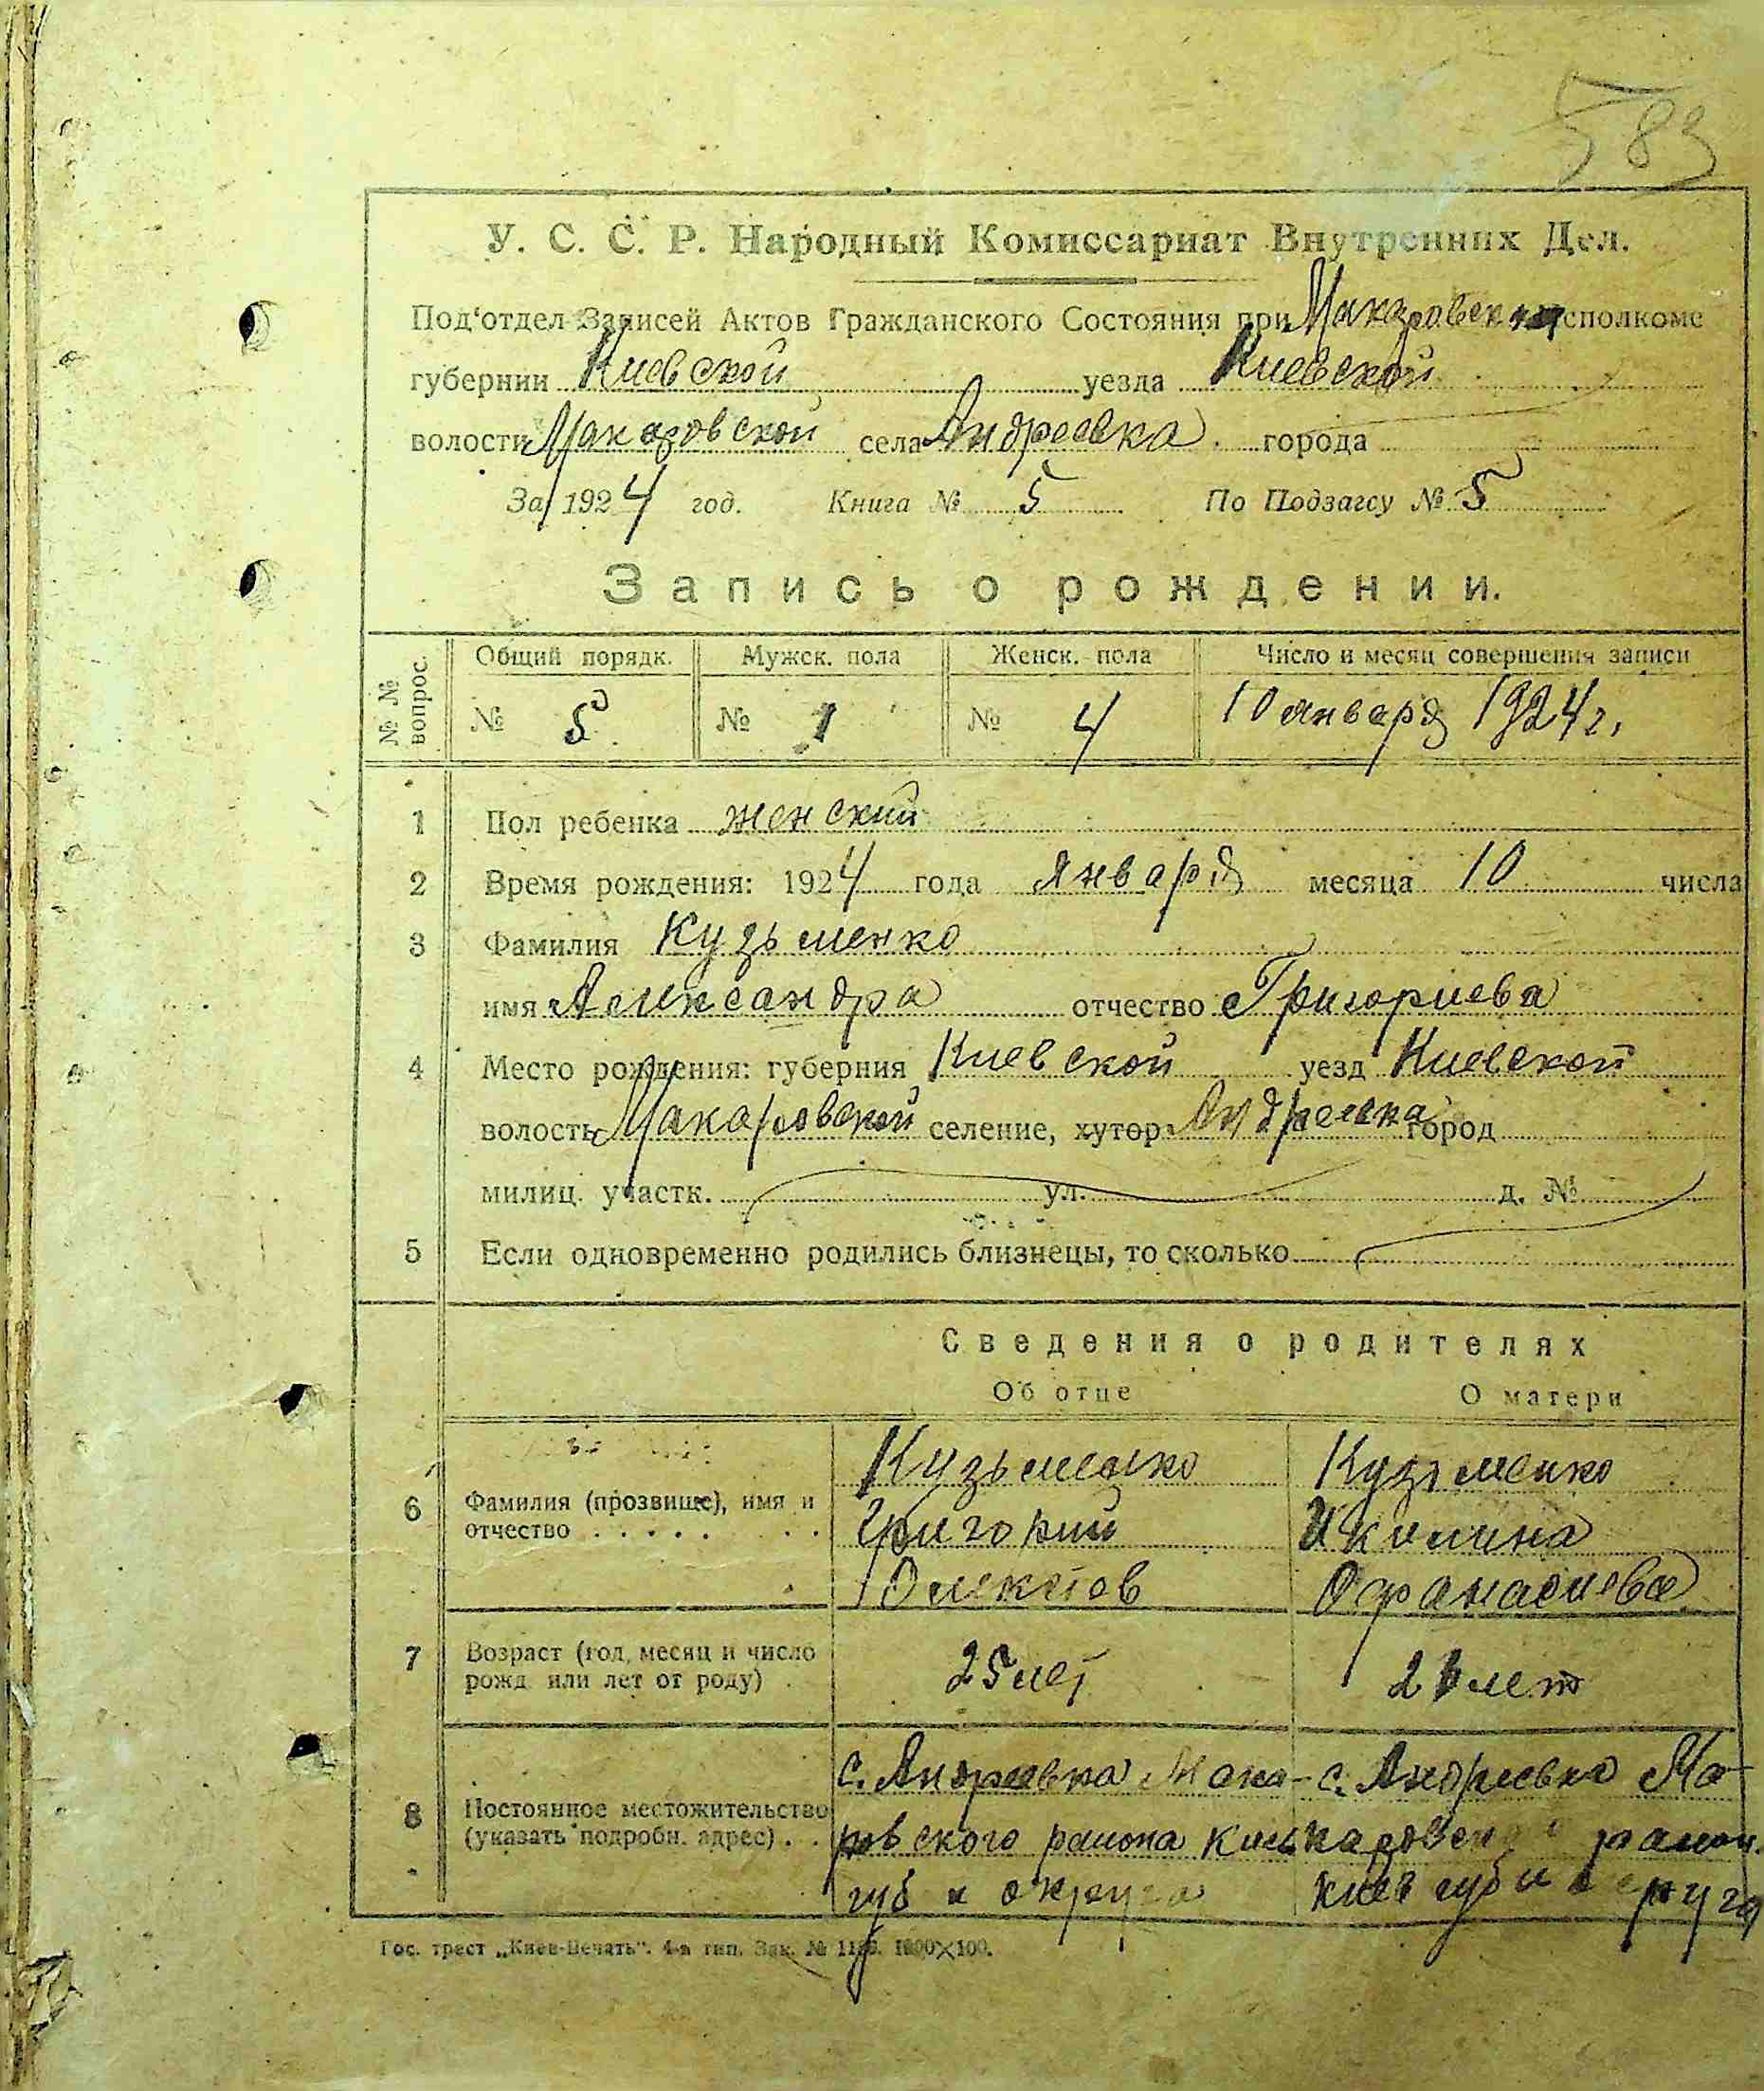 583
У. С. С. Р. Народный Комиссариат Внутренних Дел.
Под'отдел Записей Актов Гражданского Состояния при Макаровск исполкоме
губернии Киевской уезда Киевской
волости Макаровской села Андреевка города
За 1924 год. Книга № 5 По Подзагсу № 5
Запись о рождении.
№ № вопрос. Общий порядк. Мужск. пола Женск. пола Число и месяц совершения записи
№ 5 № 1 № 4 10 января 1924 г.
1 Пол ребенка женский
2 Время рождения: 1924 года января месяца 10 числа
3 Фамилия Кузьменко
имя Александра отчество Григориева
4 Место рождения: губерния Киевской уезд Киевской
волость Макаровской селение, хутор Андреевка город
милиц. участк. ул. д. №
5 Если одновременно родились близнецы, то сколько
Сведения о родителях
Об отце О матери
Кузьменко Кузьменко
6 Фамилия (прозвище), имя и отчество Григорий Акилина
Офанасиева
7 Возраст (год, месяц и число рожд. или лет от роду) 25 лет 21 лет
с. Андреевка Мака- с. Андреевка Ма-
8 Постоянное местожительство (указать подробн. адрес) ровского района Киев каровск район.
губ и округа Киев губ и округа
Гос. трест „Киев-Печать". 4-я тип. Зак. № 1000×100.